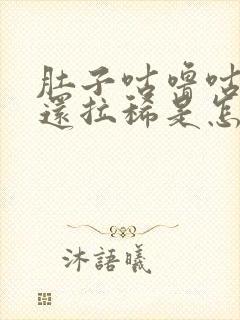 肚子咕嚕咕
還拉稀是怎
沐語曦